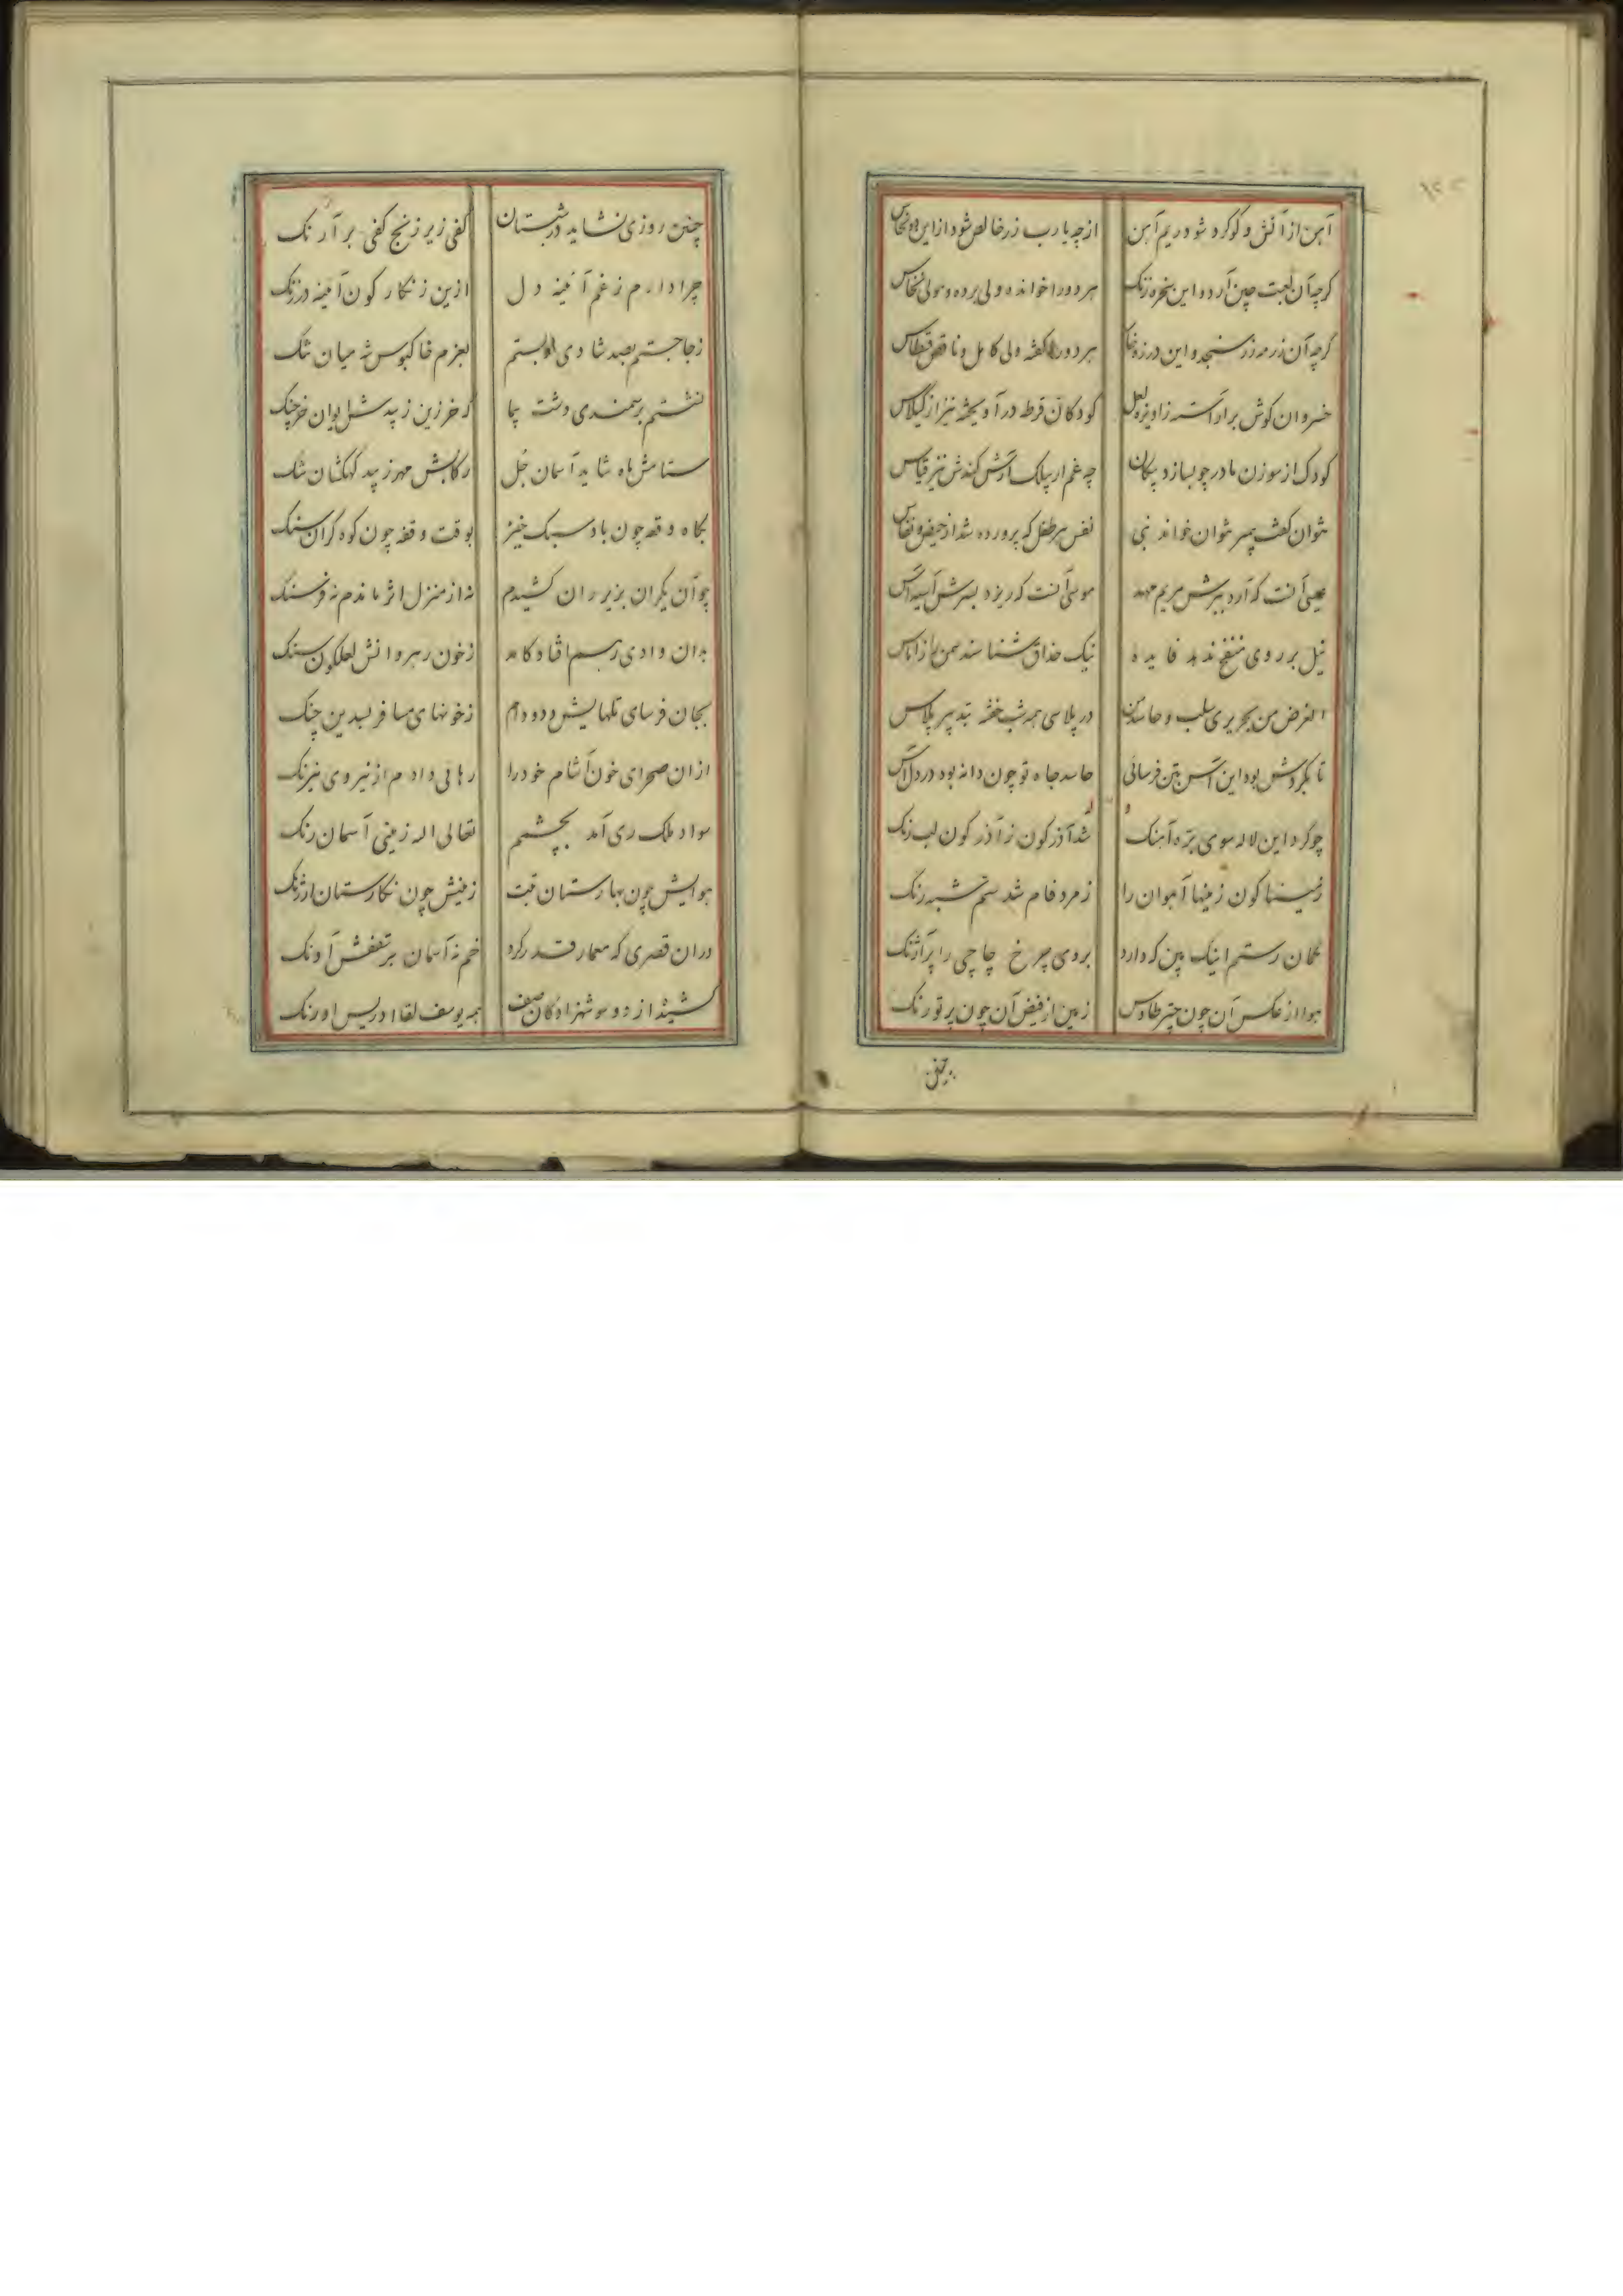 آهن از آتش و کوکرد شود ریم آهن از چه یارب زر خالص شود از این دو نحاس
کرچه آن لعبت چین آرد و این زنک هر دو را خوانده ولی برده و مولی نخاس
کرچه آن زر سنجد و این هر دو را کفته ولی کامل و ناقص قسطاس
خسروان کوش بر آراسته ز آویزه لعل کودکان قرط در آویخته نیز از کیلاس
کودک از سوزن مادر چو بسازد پیکان چه غم ار
نتوان کفت پسر نتوان خواند نبی نفس هر طفل که پرورده شد از حیض و نفاس
عیسی آنست که آرد ببرش مریم مهد موسی آنست که ریزد بسرش آسیه آس
نیل بر روی ندهد فایده نیک حذاق شناسند سمن را ز اماس
الغرض من بحریری سلب و حاسد من در پلاسی همه شب خفته
تا بکردش بود این آس بتن فرسائی حاسد جاه تو چون دانه بود در دل آس
چو کرد این لاله سوی تیره آهنک شد آذرکون ز آذرکون لب رنک
زمینا کون زمینها آهوان را زمرد فام شد سم شبه رنک
کمان رستم اینک بین که دارد بروی چرخ چاچی را پر آژنک
هوا از عکس آن چون چتر طاوس زمین از فیض آن چون پر تورنک
چنین
چنین روزی نشاید در شبستان کفی زیر زنخ کفی بر آرنک
چرا دارم ز غم آئینه دل ازین زنکار کون آئینه در زنک
ز جا جستم بصد شادی و بستم بعزم خاکبوس شه میان تنک
نشستم بر سمندی دشت پیما
ستامش ماه شاید آسمان جل رکابش مهر زیبد کهکشان تنک
بکاه وقعه چون باد سبک خیز بوقت وقفه چون کوه کران سنک
چو آن یکران بزیر ران کشیدم نه از منزل اثر ماندم نه فرسنک
بدان وادی رسم افتاد کامد ز خون رهروانش لعلکون سنک
بجان فرسای تلهایش دد و دام ز خونهای مسافر چنک
ازان صحرای خون آشام خود را رهائی دادم از نیروی نیرنک
سواد ملک ری آمد بچشمم تعالی اله زمینی آسمان رنک
هوایش چون بهارستان تبت زمینش چون نکارستان ارژنک
دران قصری که معمار قدر کرد خم نه آسمان بر سقفش آونک
کشیده از دو سو شهزادکان صف همه یوسف لقا ادریس اورنک